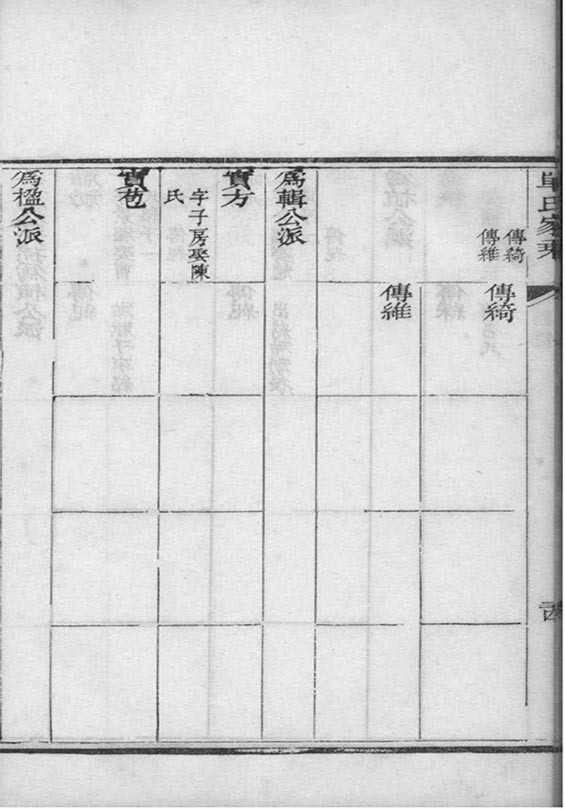 單氏家乘
傳綺
傳維
傳綺
傳維
為輯公派
實方
字子房娶陳
氏
實苞
為楹公派